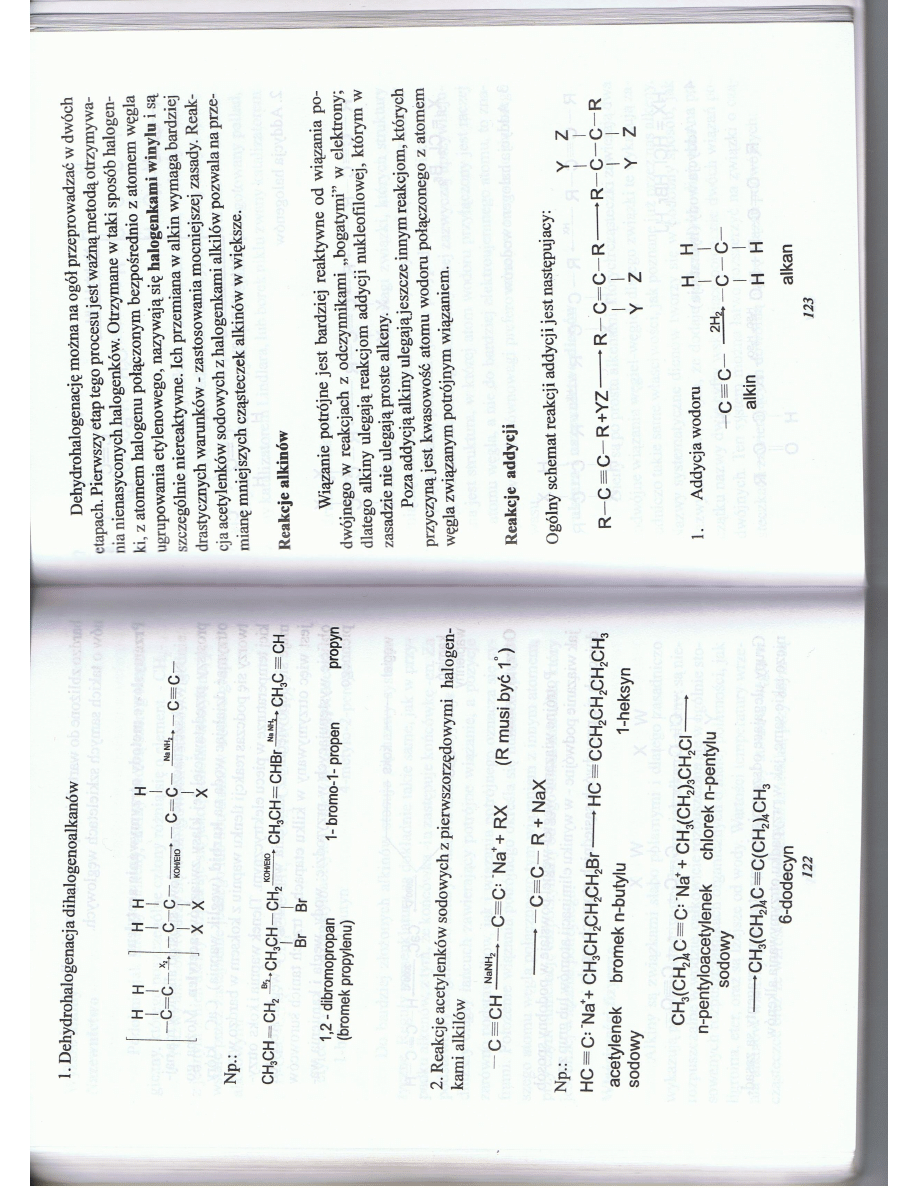 1. Dehydrohalogenacja dihalogenoalkanów
H H H H H
[—C=C— X₂→] —C—C— KOH/EtO→ —C=C— NaNH₂→ —C≡C—
X X X
Np.:
CH₃CH=CH₂ Br₂→ CH₃CH—CH₂ KOH/EtO→ CH₃CH=CHBr NaNH₂→ CH₃C≡CH
Br Br
1,2 - dibromopropan 1- bromo-1- propen propyn
(bromek propylenu)
2. Reakcje acetylenków sodowych z pierwszorzędowymi halogen-
kami alkilów
—C≡CH NaNH₂→ —C≡C:⁻Na⁺ + RX (R musi być 1°)
→ —C≡C—R + NaX
Np.:
HC≡C:⁻Na⁺+ CH₃CH₂CH₂CH₂Br → HC≡CCH₂CH₂CH₂CH₃
acetylenek bromek n-butylu 1-heksyn
sodowy
CH₃(CH₂)₄C≡C:⁻Na⁺ + CH₃(CH₂)₃CH₂Cl →
n-pentyloacetylenek chlorek n-pentylu
sodowy
→ CH₃(CH₂)₄C≡C(CH₂)₄CH₃
6-dodecyn
122
Dehydrohalogenację można na ogół przeprowadzać w dwóch
etapach. Pierwszy etap tego procesu jest ważną metodą otrzymywa-
nia nienasyconych halogenków. Otrzymane w taki sposób halogen-
ki, z atomem halogenu połączonym bezpośrednio z atomem węgla
ugrupowania etylenowego, nazywają się halogenkami winylu i są
szczególnie niereaktywne. Ich przemiana w alkin wymaga bardziej
drastycznych warunków - zastosowania mocniejszej zasady. Reak-
cja acetylenków sodowych z halogenkami alkilów pozwala na prze-
mianę mniejszych cząsteczek alkinów w większe.
Reakcje alkinów
Wiązanie potrójne jest bardziej reaktywne od wiązania po-
dwójnego w reakcjach z odczynnikami „bogatymi” w elektrony;
dlatego alkiny ulegają reakcjom addycji nukleofilowej, którym w
zasadzie nie ulegają proste alkeny.
Poza addycją alkiny ulegają jeszcze innym reakcjom, których
przyczyną jest kwasowość atomu wodoru połączonego z atomem
węgla związanym potrójnym wiązaniem.
Reakcje addycji
Ogólny schemat reakcji addycji jest następujacy:
Y Z
R—C≡C—R+YZ → R—C=C—R → R—C—C—R
Y Z Y Z
1. Addycja wodoru
H H
—C≡C— 2H₂→ —C—C—
H H
alkin alkan
123